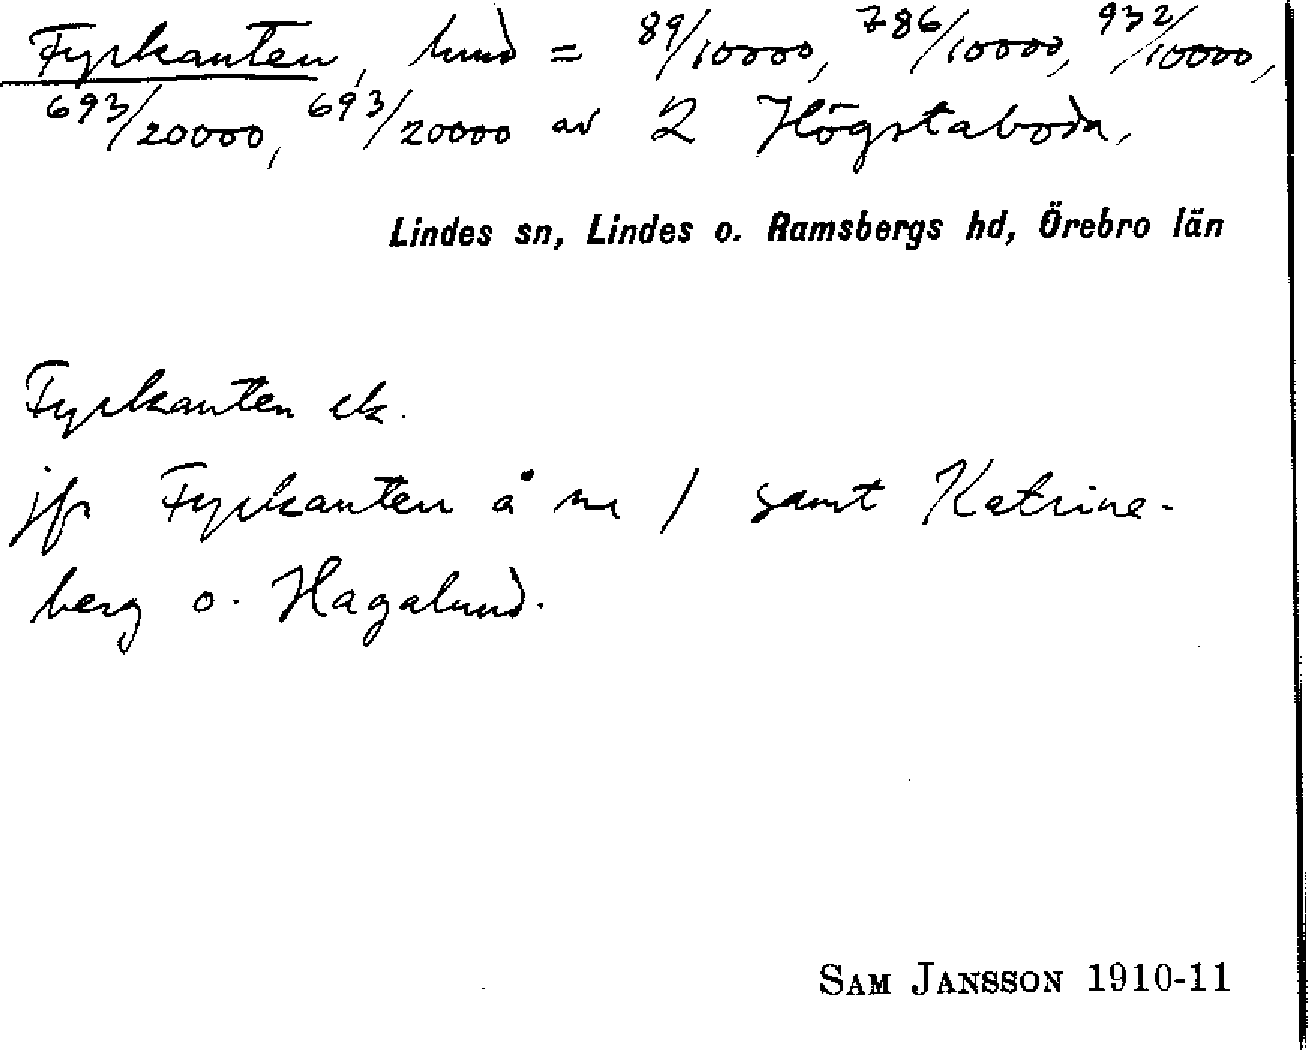 Fyrkanten, hmd = 89/10000, 786/10000, 932/10000,
693/20000, 693/20000 av 2 Högstaboda,
Lindes sn, Lindes o. Ramsbergs hd, Örebro län
Fyrkanten ek.
jfr Fyrkanten å nr 1 samt Katrine-
berg o. Hagalund.
SAM JANSSON 1910-11